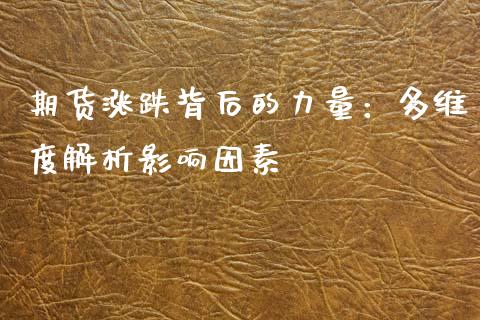 期货涨跌背后的力量：多维
度解析影响因素